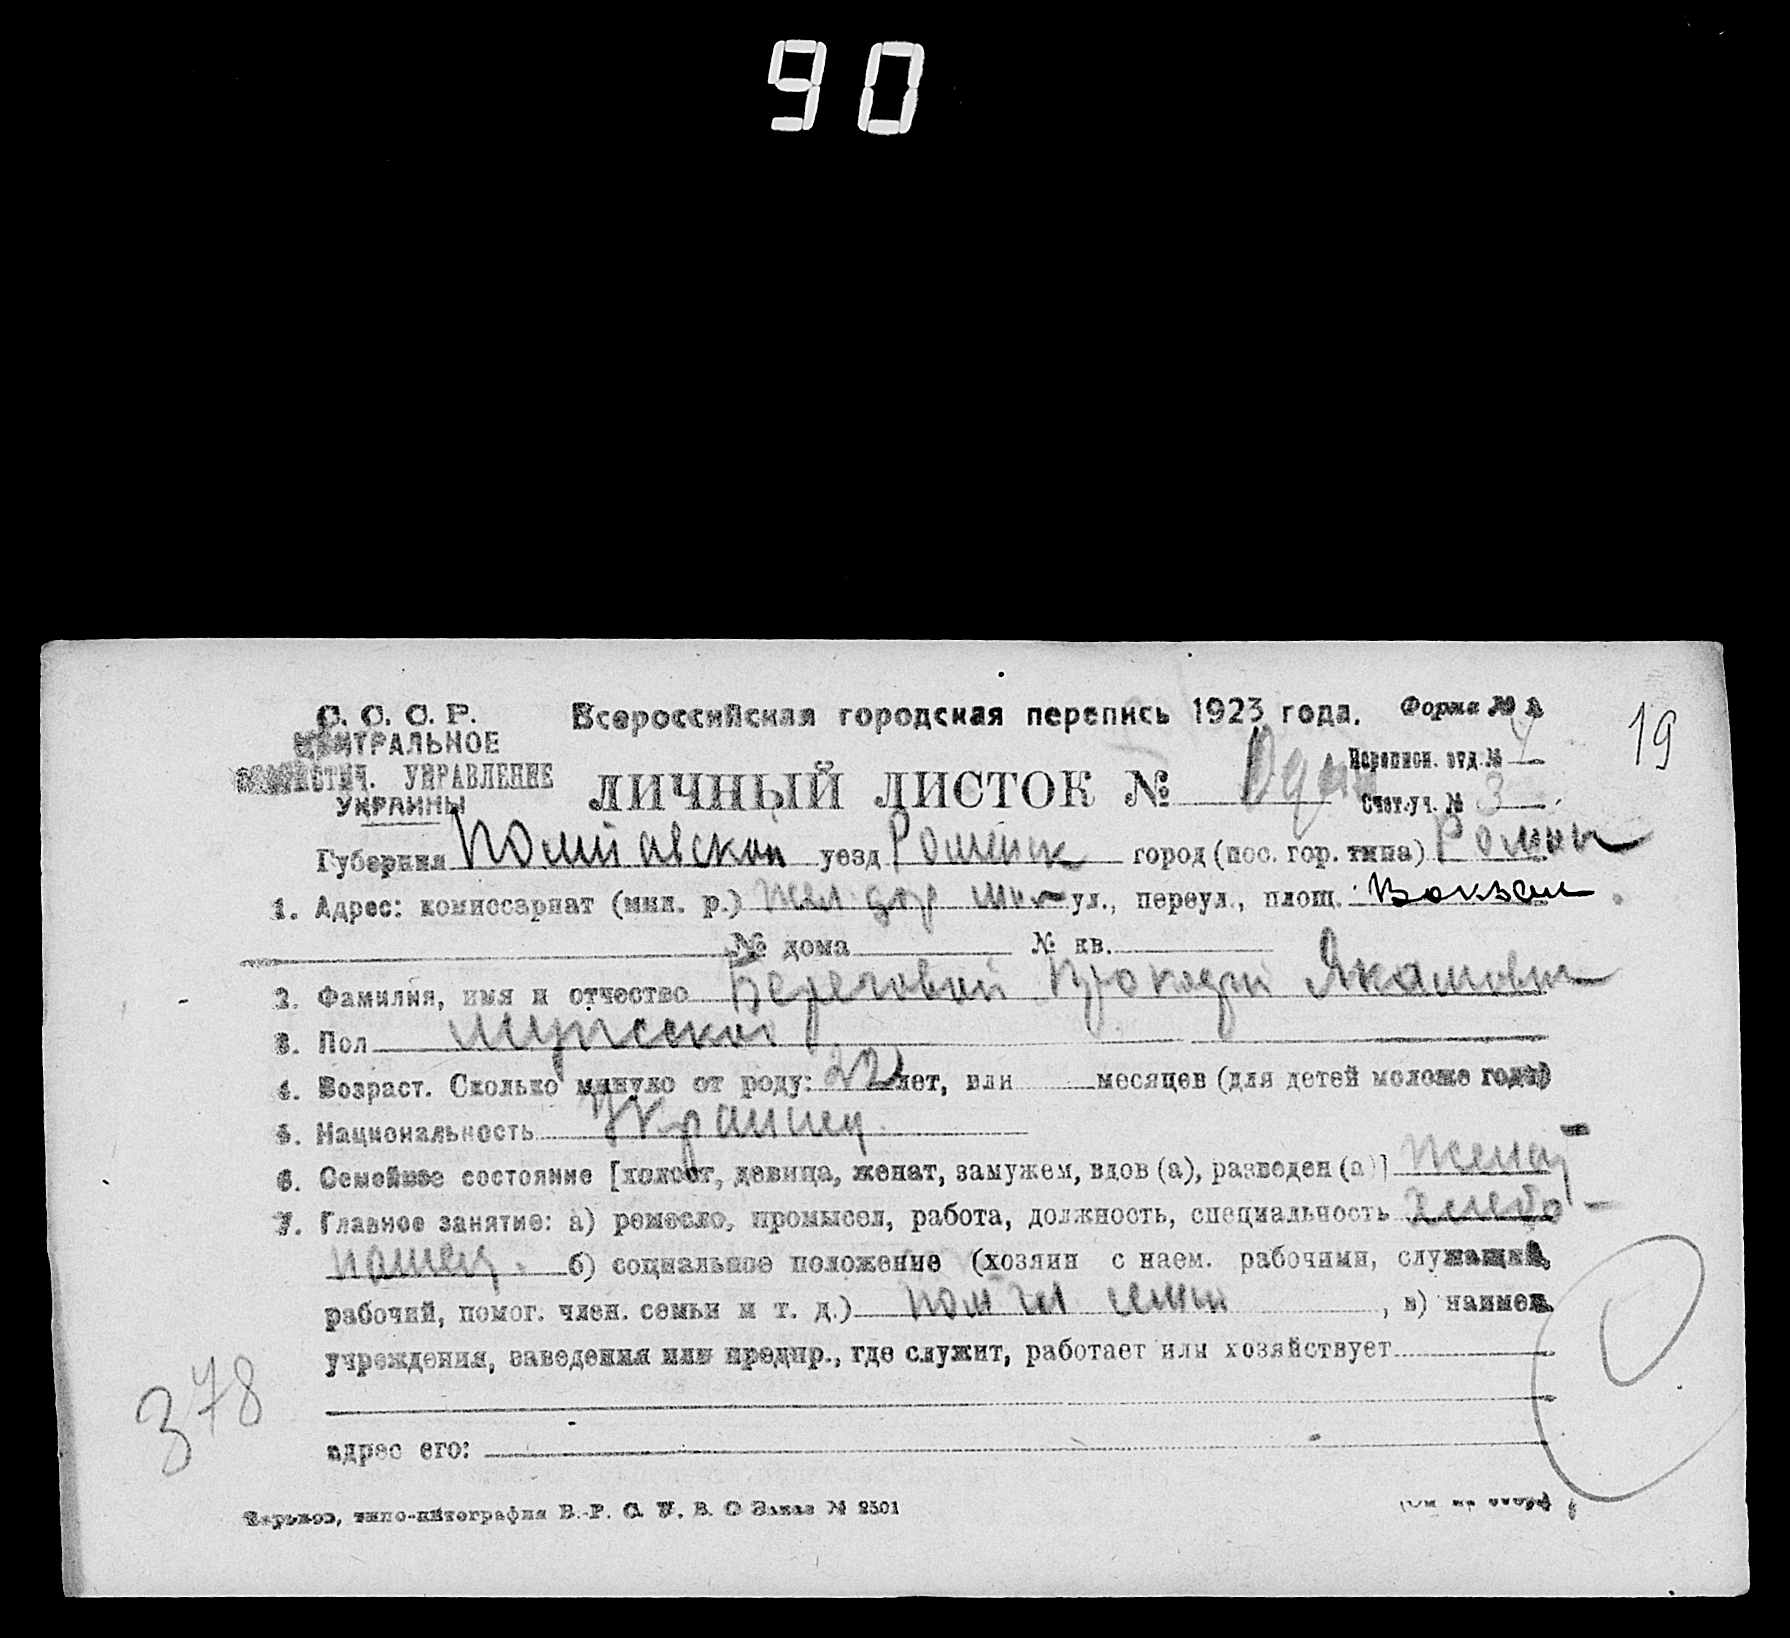 90
С. С. С. Р.
ЦЕНТРАЛЬНОЕ
СТАТИСТИЧ. УПРАВЛЕНИЕ
УКРАИНЫ
Всероссийская городская перепись 1923 года.
Форма № А
19
ЛИЧНЫЙ ЛИСТОК № Один
Переписн. отд. № 4
Счет. уч. № 3
Губерния Полтавская уезд Роменск город (пос. гор. типа) Ромны
1. Адрес: комиссариат (мил. р.) жел дор ул., переул., площ. Вокзал
№ дома № кв.
2. Фамилия, имя и отчество Береговой Якимович
3. Пол мужской
4. Возраст. Сколько минуло от роду: 22 лет, или месяцев (для детей моложе года)
5. Национальность Украинец
6. Семейное состояние [холост, девица, женат, замужем, вдов (а), разведен (а)] женат
7. Главное занятие: а) ремесло, промысел, работа, должность, специальность хлебо-
пашец. б) социальное положение (хозяин с наем. рабочими, служащий,
рабочий, помог. член. семьи и т. д.) пом чл семьи , в) наимен.
учреждения, заведения или предпр., где служит, работает или хозяйствует
адрес его:
378
Харьков, типо-литография В.-Р. С. У. В. О Заказ № 2501